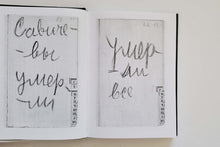 Савиче-
вы
умер-
ли
Умер-
ли
все